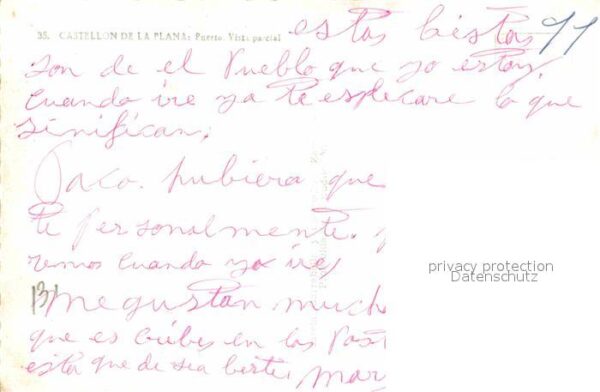 38. CASTELLON DE LA PLANA: Puerto. Vista parcial
estas bistas 99
son de el Pueblo que yo estoy,
cuando ire ya te esplecare lo que
sinifican,
Paco. hubiera que
te personalmente.
remos cuando yo ire,
131 me gustan much
que es cribes en las Post
esta que de sea berte. mar
privacy protection
Datenschutz